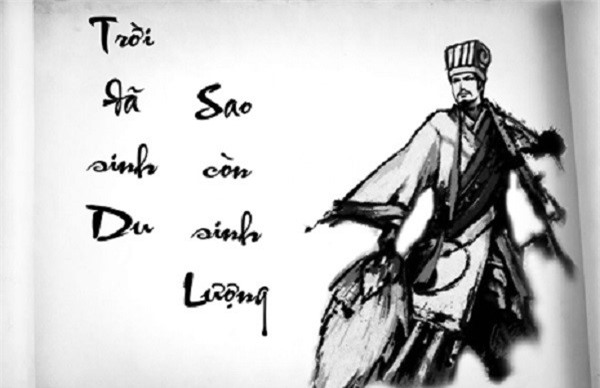 Trời
đã
sinh
Du
Sao
còn
sinh
Lượng